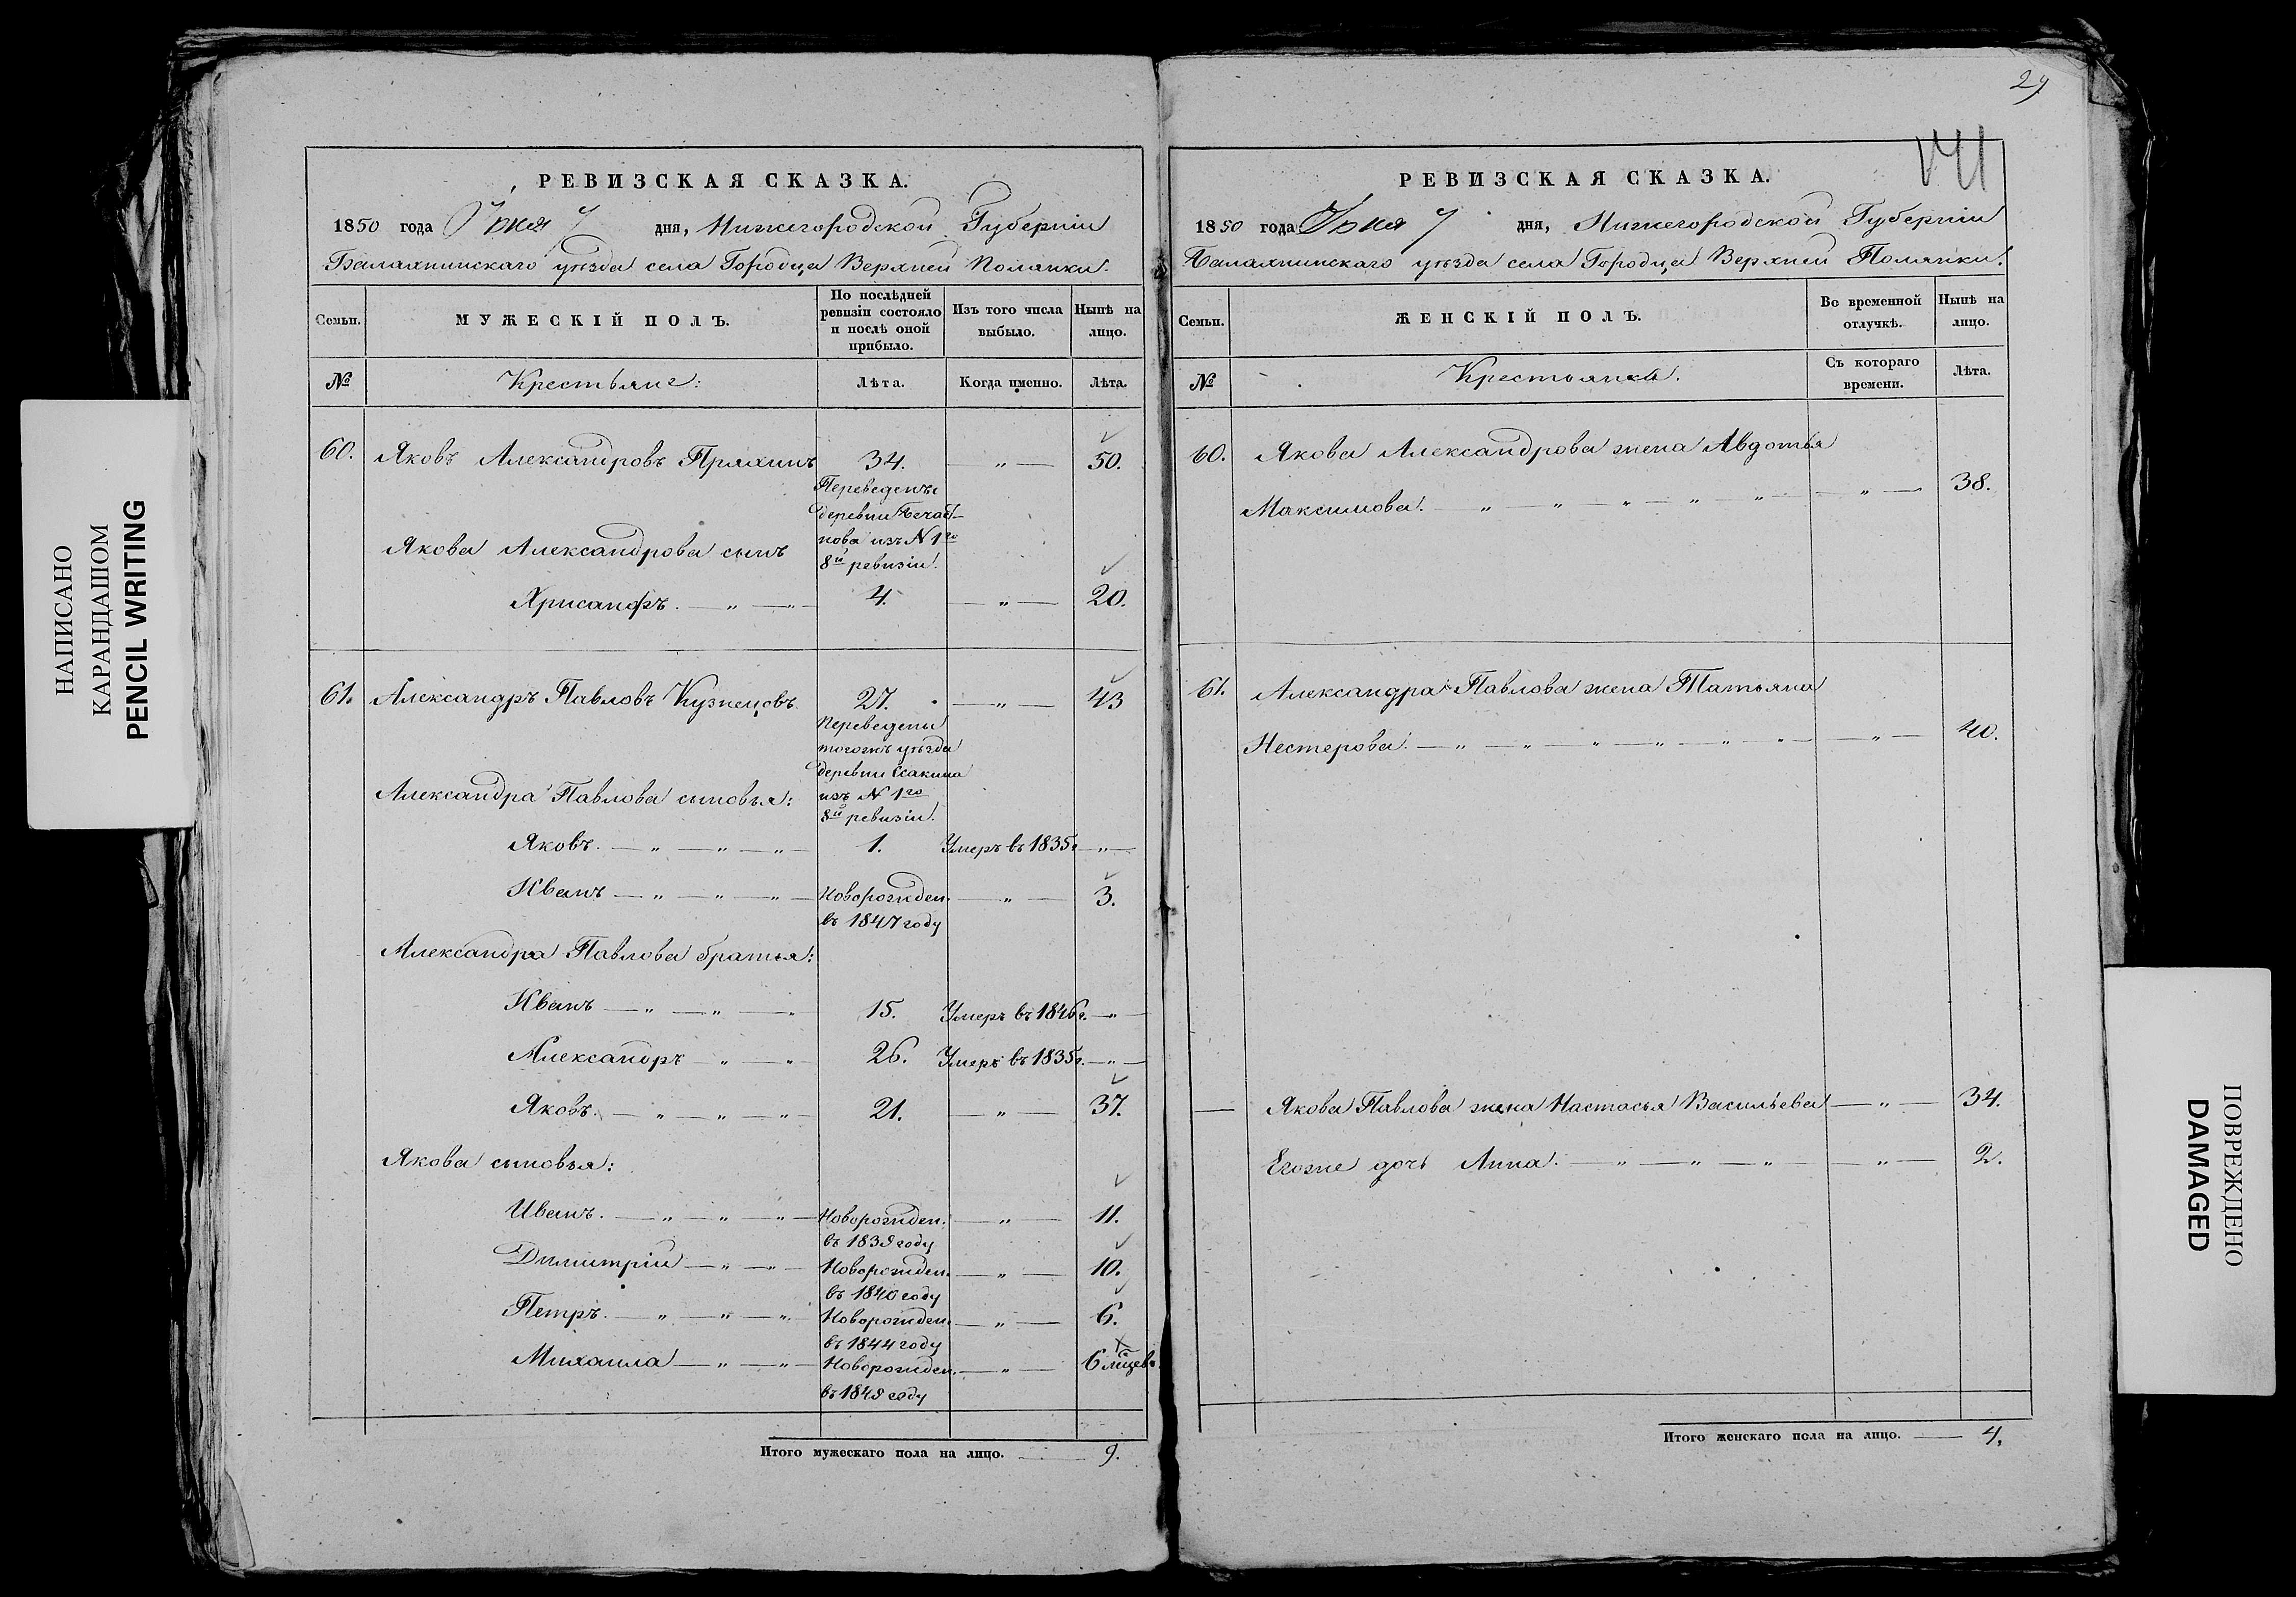 НАПИСАНО
КАРАНДАШОМ
PENCIL WRITING
РЕВИЗСКАЯ СКАЗКА.
1850 года Июня 7 дня, Нижегородской Губерніи
Балахнинскаго уѣзда села Городца Верхней Полянки.
Семьи.
МУЖЕСКІЙ ПОЛЪ.
По послѣдней
ревизіи состояло
и послѣ оной
прибыло.
Изъ того числа
выбыло.
Нынѣ на
лицо.
№
Крестьяне:
Лѣта.
Когда именно.
Лѣта.
60. Яковъ Александровъ Пряхинъ 34. — „ — 50.
Переведенъ
деревни
нова изъ N 1го
8й ревизіи.
Якова Александрова сынъ
Хрисанфъ. — „ — 4. — „ — 20.
61. Александръ Павловъ Кузнецовъ 27. — „ — 43
Переведены
тогожъ уѣзда
деревни Исакина
изъ N 1го
8й ревизіи.
Александра Павлова сыновья:
Яковъ. — „ — „ — „ — 1. Умеръ въ 1835г — „ —
Иванъ — „ — „ — „ — Новорожден. — „ — 3.
въ 1847 году
Александра Павлова братья:
Иванъ — „ — „ — „ 15. Умеръ въ 1846г. — „ —
Александръ — „ — „ 26. Умеръ въ 1835г. — „ —
Яковъ. — „ — „ — „ — 21. — „ — 37.
Якова сыновья:
Иванъ. — „ — „ — „ — Новорожден. — „ — 11.
въ 1839 году
Димитрій — „ — „ — Новорожден. — „ — 10.
въ 1840 году
Петръ. — „ — „ — „ Новорожден. — „ — 6.
въ 1844 году
Михаила — „ — „ — Новорожден. — „ — 6 мѣсцевъ.
въ 1849 году
Итого мужескаго пола на лицо. — 9.
29
141
РЕВИЗСКАЯ СКАЗКА.
1850 года Июня 7 дня, Нижегородской Губерніи
Балахнинскаго уѣзда села Городца Верхней Полянки.
Семьи.
ЖЕНСКІЙ ПОЛЪ.
Во временной
отлучкѣ.
Нынѣ на
лицо.
№
Крестьянки.
Съ котораго
времени.
Лѣта.
60. Якова Александрова жена Авдотья
Максимова. — „ — „ — „ — „ — „ — „ — 38.
61. Александра Павлова жена Татьяна
Нестерова. — „ — „ — „ — „ — „ — „ — „ — 40.
— Якова Павлова жена Настасья Васильева — „ — 34.
Егоже дочь Анна. — „ — „ — „ — „ — 2.
Итого женскаго пола на лицо. — 4.
ПОВРЕЖДЕНО
DAMAGED